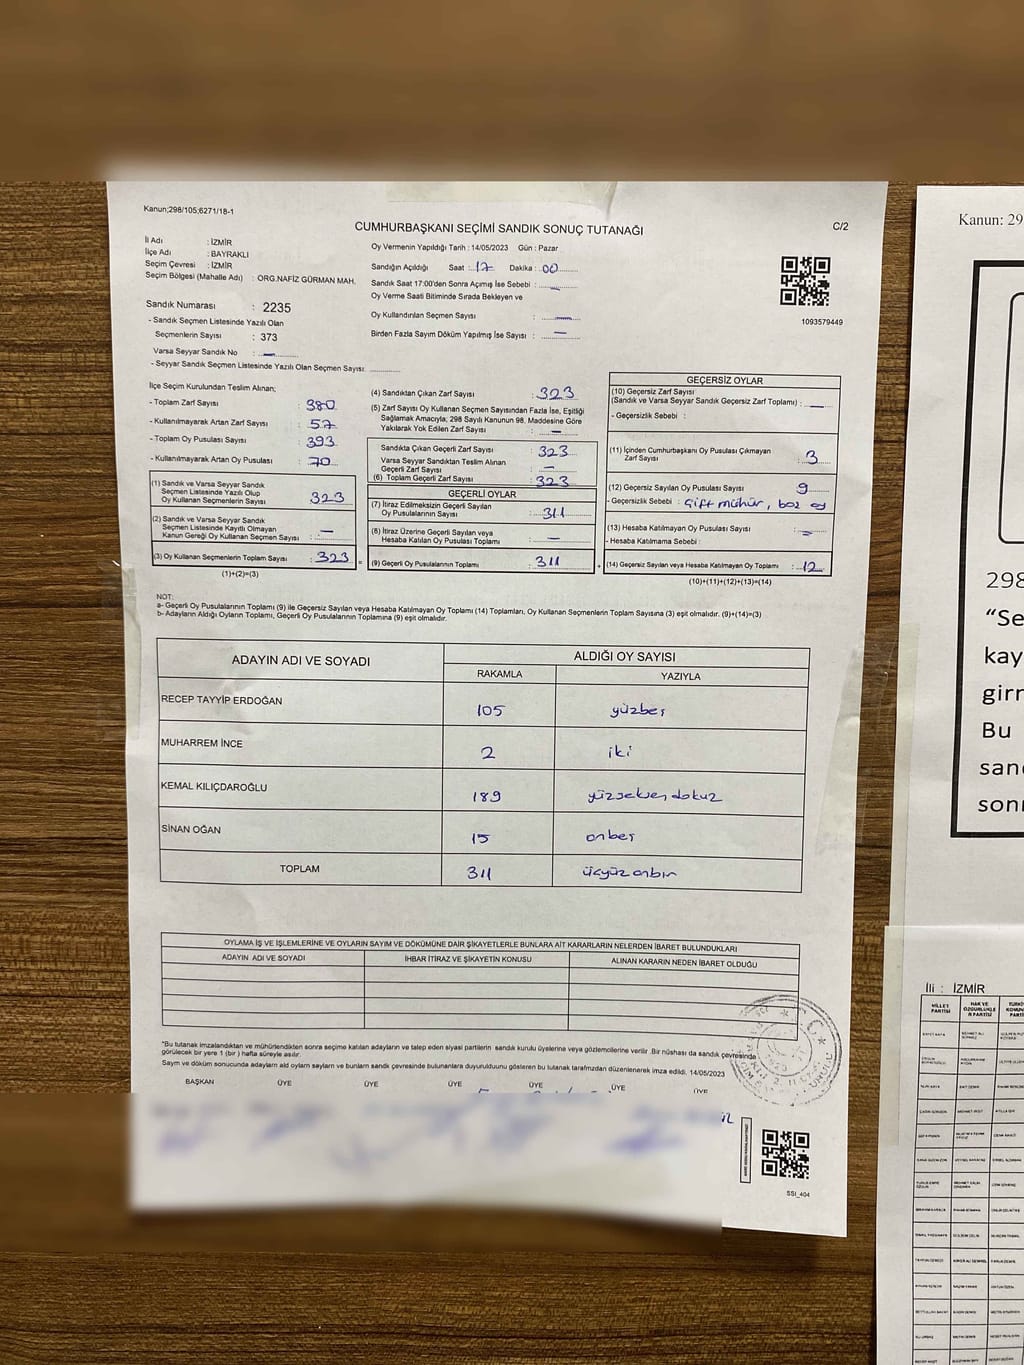 Kanun;298/105;6271/18-1
CUMHURBAŞKANI SEÇİMİ SANDIK SONUÇ TUTANAĞI
C/2
İl Adı : İZMİR
İlçe Adı : BAYRAKLI
Seçim Çevresi : İZMİR
Seçim Bölgesi (Mahalle Adı) : ORG.NAFİZ GÜRMAN MAH.
Sandık Numarası : 2235
- Sandık Seçmen Listesinde Yazılı Olan
Seçmenlerin Sayısı : 373
Varsa Seyyar Sandık No : —
- Seyyar Sandık Seçmen Listesinde Yazılı Olan Seçmen Sayısı:
Oy Vermenin Yapıldığı Tarih : 14/05/2023 Gün : Pazar
Sandığın Açıldığı Saat : 17 Dakika : 00
Sandık Saat 17:00'den Sonra Açımış İse Sebebi : —
Oy Verme Saati Bitiminde Sırada Bekleyen ve
Oy Kullandırılan Seçmen Sayısı : —
Birden Fazla Sayım Döküm Yapılmış İse Sayısı : —
1093579449
İlçe Seçim Kurulundan Teslim Alınan;
- Toplam Zarf Sayısı : 380
- Kullanılmayarak Artan Zarf Sayısı : 57
- Toplam Oy Pusulası Sayısı : 393
- Kullanılmayarak Artan Oy Pusulası : 70
(1) Sandık ve Varsa Seyyar Sandık
Seçmen Listesinde Yazılı Olup
Oy Kullanan Seçmenlerin Sayısı : 323
(2) Sandık ve Varsa Seyyar Sandık
Seçmen Listesinde Kayıtlı Olmayan
Kanun Gereği Oy Kullanan Seçmen Sayısı : —
(3) Oy Kullanan Seçmenlerin Toplam Sayısı : 323
(1)+(2)=(3)
(4) Sandıktan Çıkan Zarf Sayısı : 323
(5) Zarf Sayısı Oy Kullanan Seçmen Sayısından Fazla İse, Eşitliği
Sağlamak Amacıyla, 298 Sayılı Kanunun 98. Maddesine Göre
Yakılarak Yok Edilen Zarf Sayısı : —
Sandıkta Çıkan Geçerli Zarf Sayısı : 323
Varsa Seyyar Sandıktan Teslim Alınan
Geçerli Zarf Sayısı : —
(6) Toplam Geçerli Zarf Sayısı : 323
GEÇERLİ OYLAR
(7) İtiraz Edilmeksizin Geçerli Sayılan
Oy Pusulalarının Sayısı : 311
(8) İtiraz Üzerine Geçerli Sayılan veya
Hesaba Katılan Oy Pusulası Toplamı : —
= (9) Geçerli Oy Pusulalarının Toplamı : 311 +
GEÇERSİZ OYLAR
(10) Geçersiz Zarf Sayısı
(Sandık ve Varsa Seyyar Sandık Geçersiz Zarf Toplamı) : —
- Geçersizlik Sebebi :
(11) İçinden Cumhurbaşkanı Oy Pusulası Çıkmayan
Zarf Sayısı : 3
(12) Geçersiz Sayılan Oy Pusulası Sayısı : 9
- Geçersizlik Sebebi : çift mühür, boş oy
(13) Hesaba Katılmayan Oy Pusulası Sayısı : —
- Hesaba Katılmama Sebebi :
(14) Geçersiz Sayılan veya Hesaba Katılmayan Oy Toplamı : 12
(10)+(11)+(12)+(13)=(14)
NOT:
a- Geçerli Oy Pusulalarının Toplamı (9) ile Geçersiz Sayılan veya Hesaba Katılmayan Oy Toplamı (14) Toplamları, Oy Kullanan Seçmenlerin Toplam Sayısına (3) eşit olmalıdır. (9)+(14)=(3)
b- Adayların Aldığı Oyların Toplamı, Geçerli Oy Pusulalarının Toplamına (9) eşit olmalıdır.
ADAYIN ADI VE SOYADI ALDIĞI OY SAYISI
RAKAMLA YAZIYLA
RECEP TAYYİP ERDOĞAN 105 yüzbeş
MUHARREM İNCE 2 iki
KEMAL KILIÇDAROĞLU 189 yüzseksendokuz
SİNAN OĞAN 15 onbeş
TOPLAM 311 üçyüzonbir
OYLAMA İŞ VE İŞLEMLERİNE VE OYLARIN SAYIM VE DÖKÜMÜNE DAİR ŞİKAYETLERLE BUNLARA AİT KARARLARIN NELERDEN İBARET BULUNDUKLARI
ADAYIN ADI VE SOYADI İHBAR İTİRAZ VE ŞİKAYETİN KONUSU ALINAN KARARIN NEDEN İBARET OLDUĞU
"Bu tutanak imzalandıktan ve mühürlendikten sonra seçime katılan adayların ve talep eden siyasi partilerin sandık kurulu üyelerine veya gözlemcilerine verilir .Bir nüshası da sandık çevresinde
görülecek bir yere 1 (bir ) hafta süreyle asılır.
Sayım ve döküm sonucunda adayların aldı oyların sayıları ve bunların sandık çevresinde bulunanlara duyurulduunu gösteren bu tutanak tarafımızdan düzenlenerek imza edildi. 14/05/2023
BAŞKAN ÜYE ÜYE ÜYE ÜYE ÜYE ÜYE
SSI_404
Kanun: 29
298
“Se
kay
girn
Bu
sand
sonr
İli : İZMİR
MİLLET
PARTİSİ
HAK VE
ÖZGÜRLÜKLE
R PARTİSİ